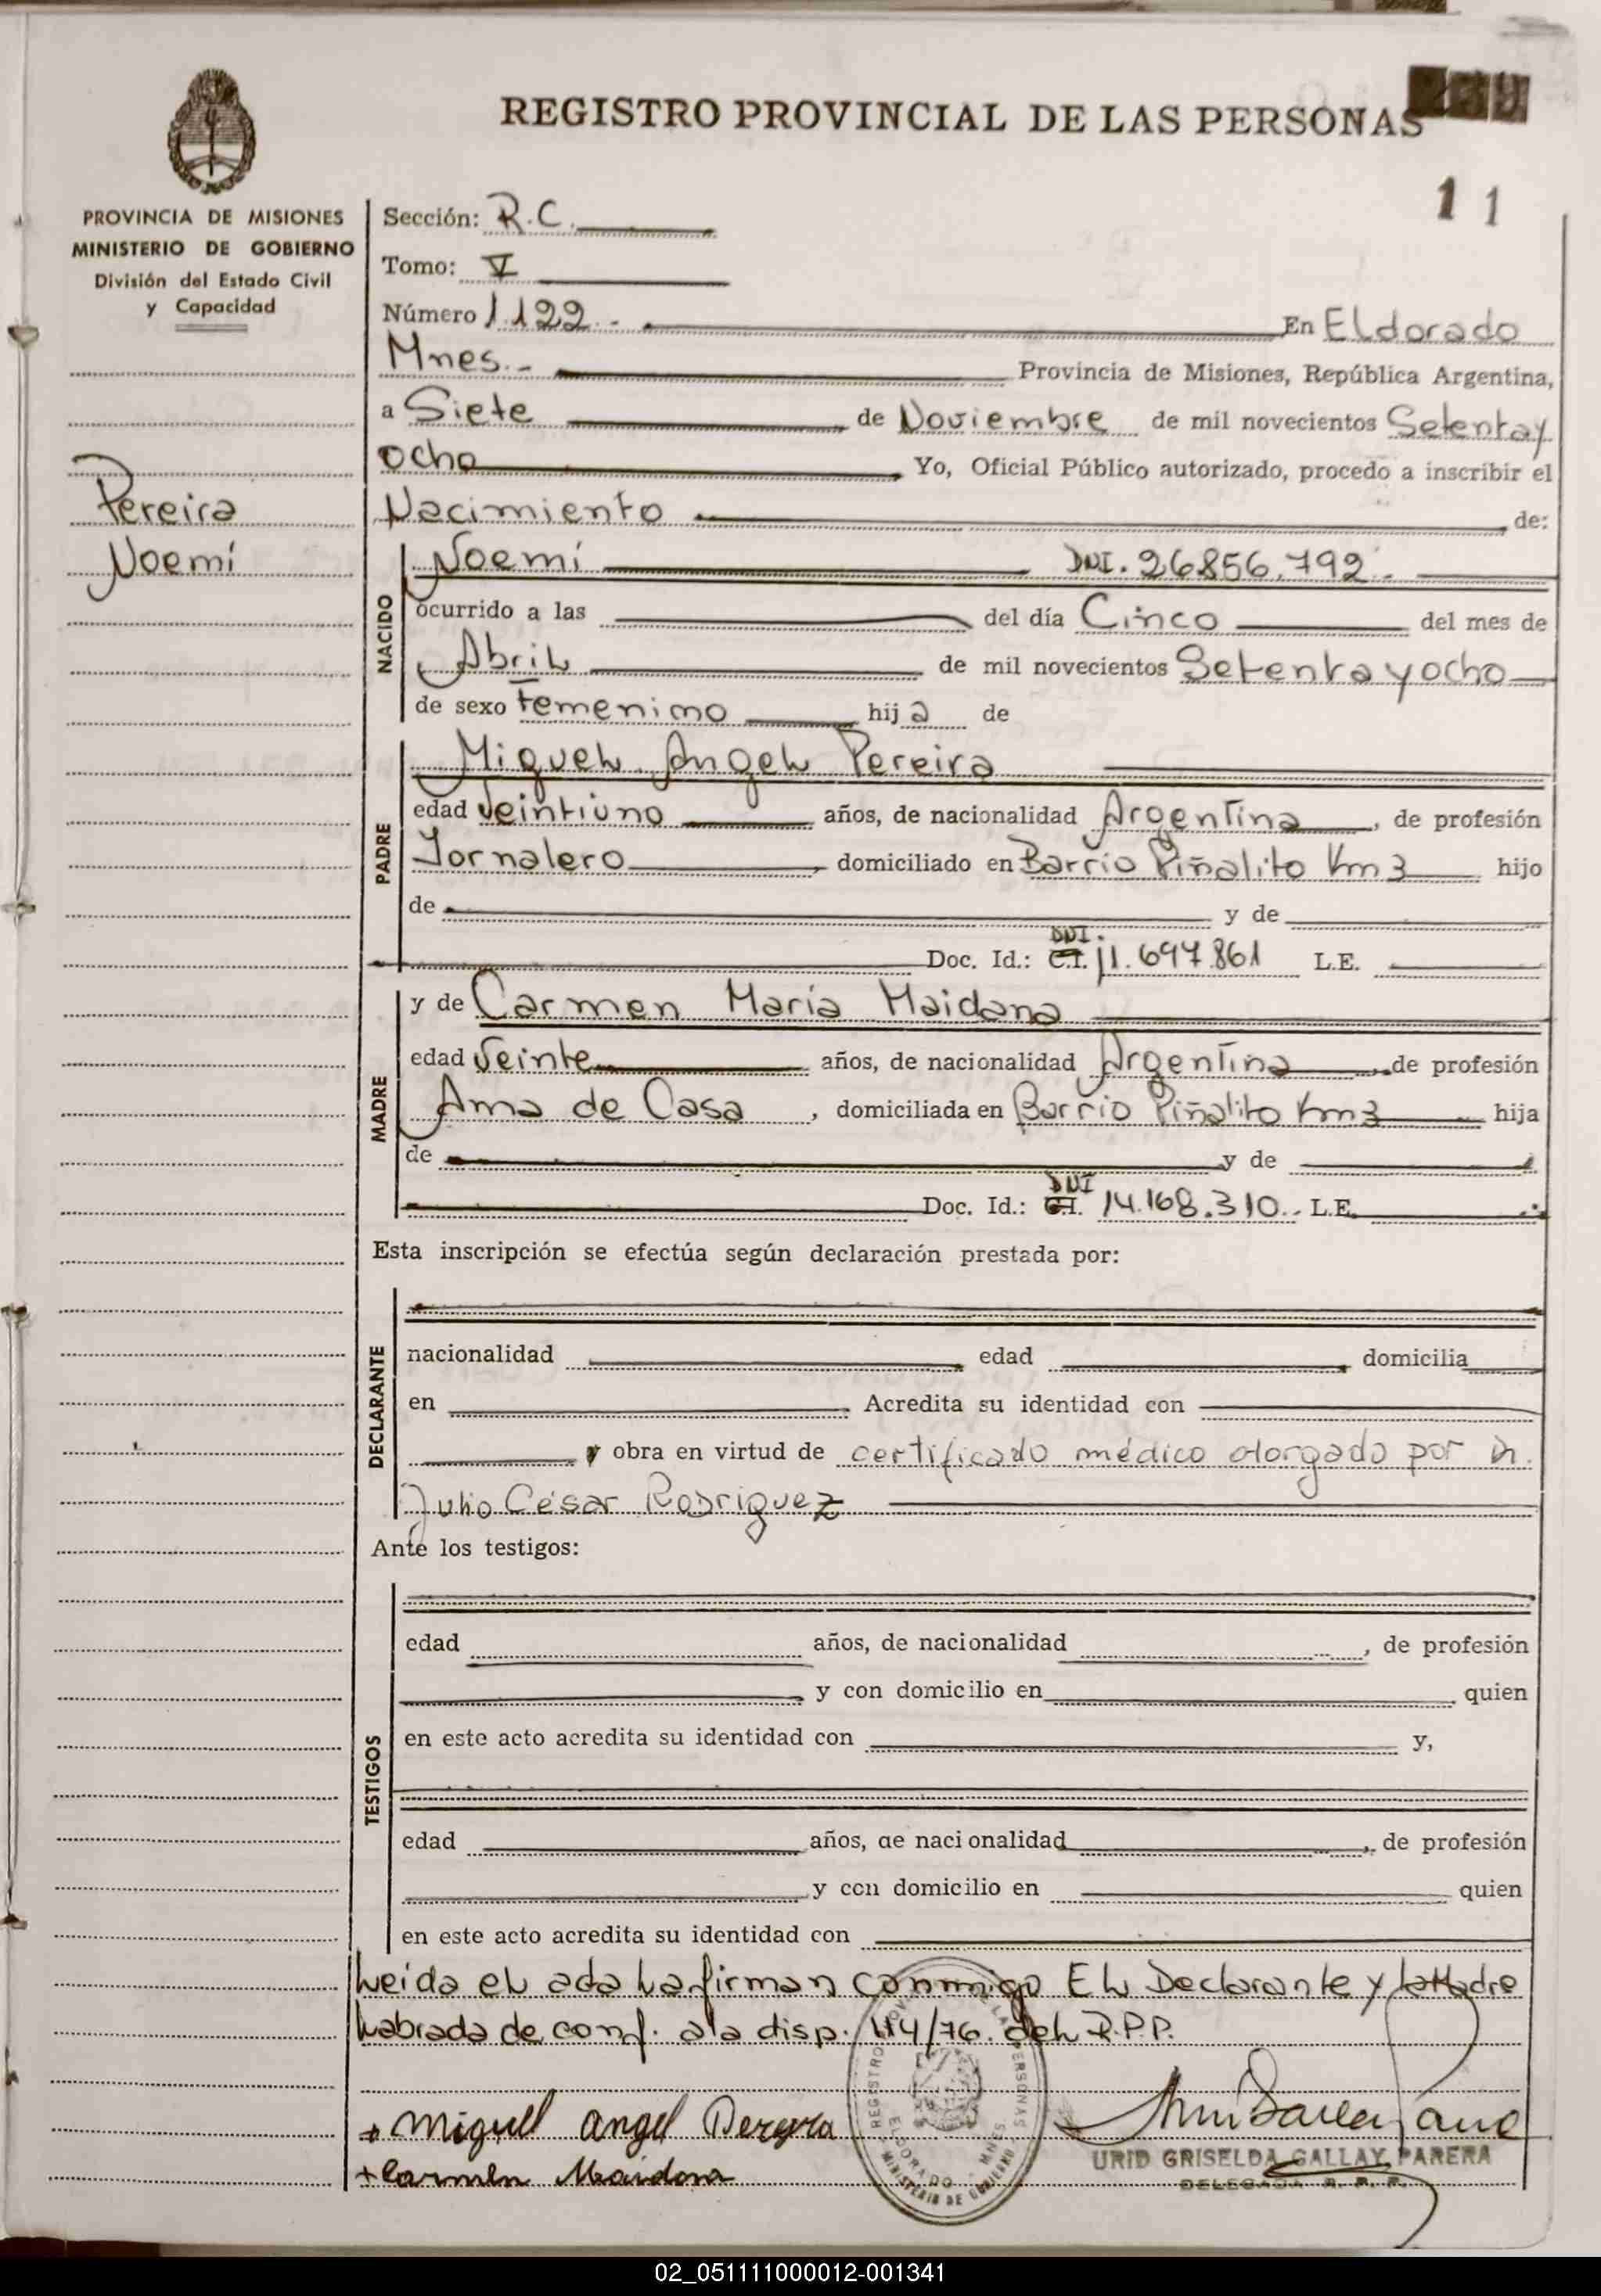 REGISTRO PROVINCIAL DE LAS PERSONAS
11
PROVINCIA DE MISIONES
MINISTERIO DE GOBIERNO
División del Estado Civil
y Capacidad
Sección: R.C.
Tomo: V
Número 1.122.- En Eldorado
Mnes.- Provincia de Misiones, República Argentina,
a Siete de Noviembre de mil novecientos Setenta y
ocho Yo, Oficial Público autorizado, procedo a inscribir el
Pereira
Noemí
Nacimiento de:
NACIDO
Noemí DNI. 26856.792.-
ocurrido a las del día Cinco del mes de
Abril de mil novecientos Setenta y ocho
de sexo Femenino hija de
PADRE
Miguel Angel Pereira
edad Veintiuno años, de nacionalidad Argentina, de profesión
Jornalero, domiciliado en Barrio Piñalito Km 3 hijo
de y de
Doc. Id.: C.I. DNI. 11.697.861 L.E.
MADRE
y de Carmen María Maidana
edad Veinte años, de nacionalidad Argentina de profesión
Ama de Casa, domiciliada en Barrio Piñalito Km 3 hija
de y de
Doc. Id.: C.I. DNI 14.168.310.- L.E.
Esta inscripción se efectúa según declaración prestada por:
DECLARANTE
nacionalidad edad domicilia
en Acredita su identidad con
y obra en virtud de certificado médico otorgado por Dr.
Julio César Rodriguez
Ante los testigos:
TESTIGOS
edad años, de nacionalidad, de profesión
y con domicilio en quien
en este acto acredita su identidad con y,
edad años, de nacionalidad, de profesión
y con domicilio en quien
en este acto acredita su identidad con
Leida el acta la firman conmigo El Declarante y la Madre
Labrada de conf. a la disp. 414/76. del R.P.P.
+ Miguel angel Pereyra
+ Carmen Maidana
REGISTRO PROVINCIAL DE LAS PERSONAS
ELDORADO - MNES.
MINISTERIO DE GOBIERNO
URID GRISELDA GALLAY PARERA
DELEGADA R. P. P.
02_051111000012-001341